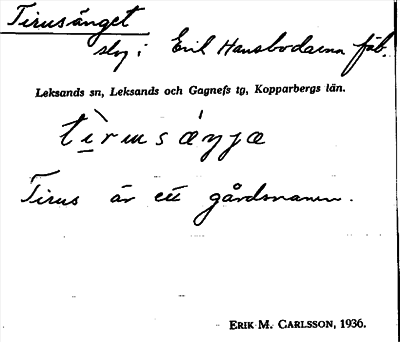 Tirusänget
slog i Eril Hansbodarna fäb.
Leksands sn, Leksands och Gagnefs tg, Kopparbergs län.
Tirus är ett gårdsnamn.
ERIK M. CARLSSON, 1936.